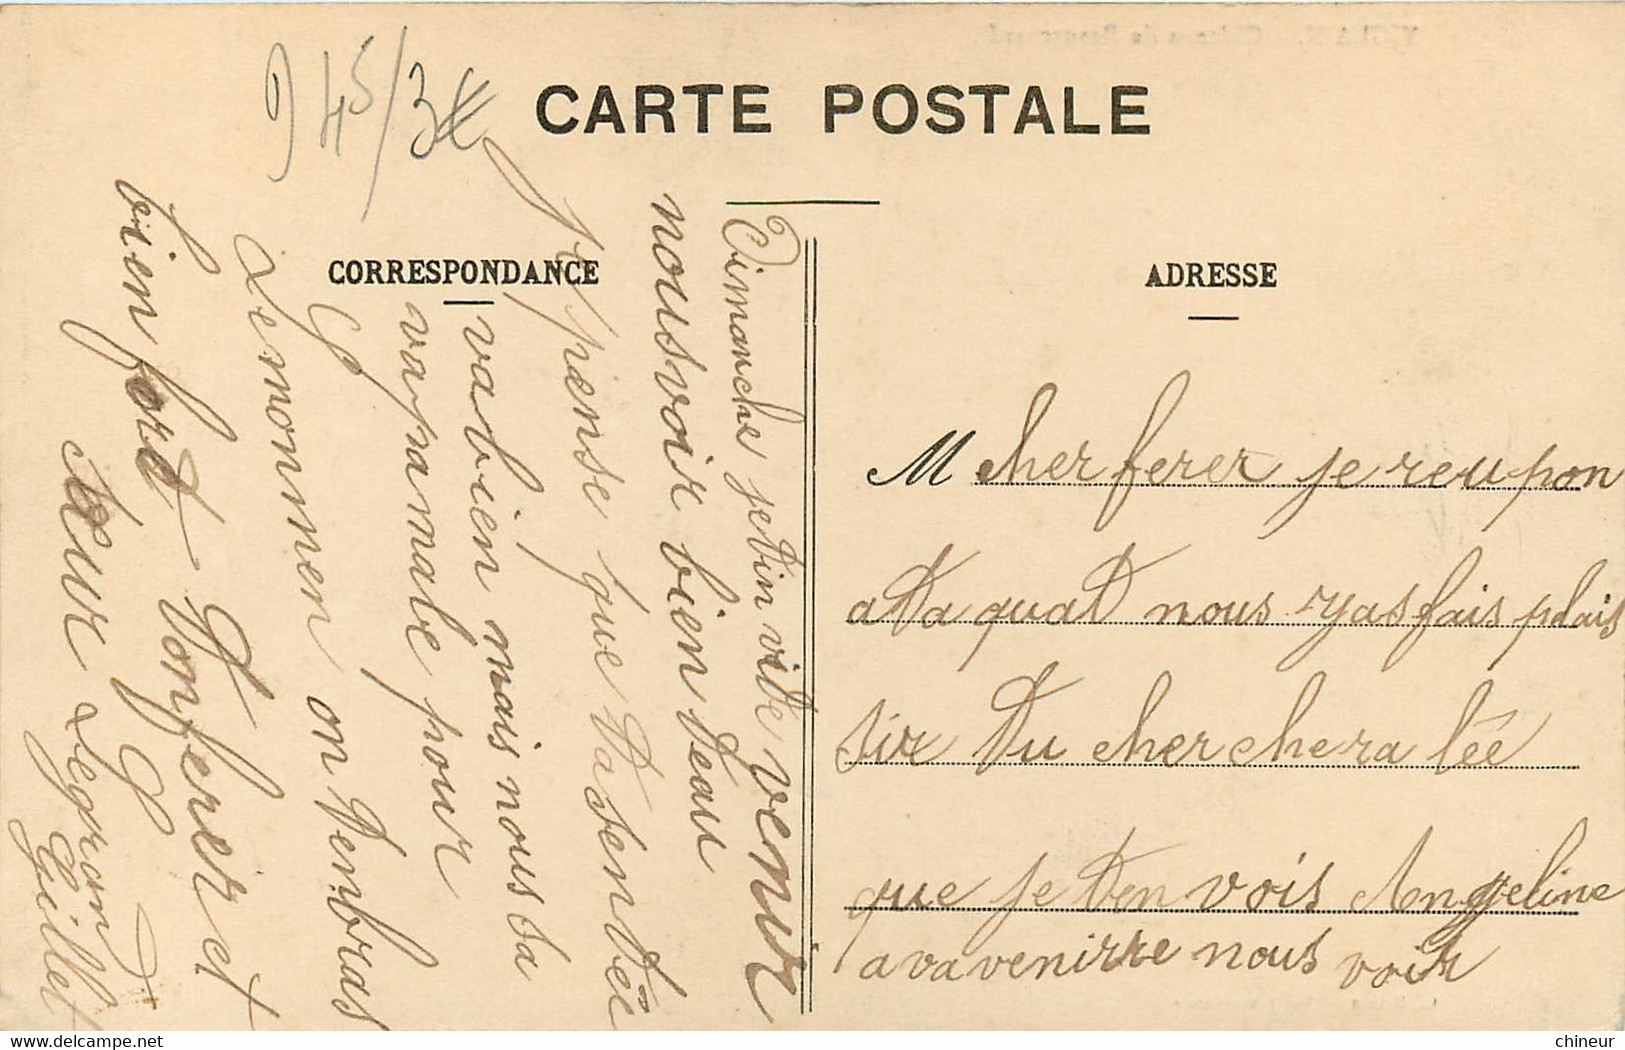 945/3€
CARTE POSTALE
CORRESPONDANCE
ADRESSE
M cher ferer je reu pon
a ta quat nous ryas fais plais
sir tu cher chera lée
que je ten vois Angeline
avavenirre nous voir
Dimanche jetin vite venir
nousvoir bien teau
Je pense que tasentée
vabien mais nous sa
vapamale pour
Lemonmen on tenbras
bien fort tonferer et
seur Legrand
Gillet
chineur